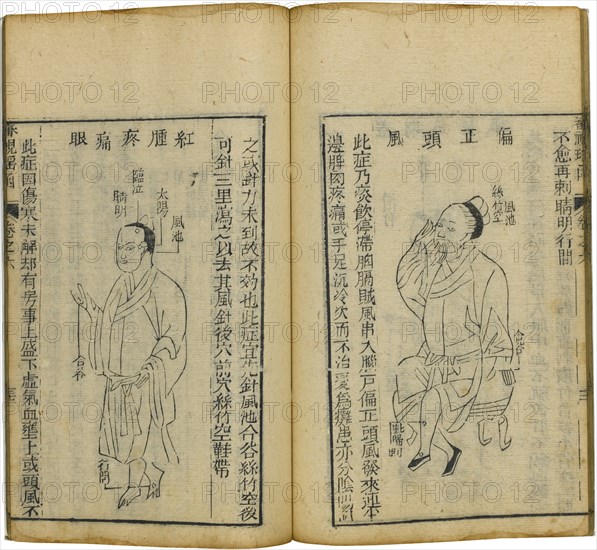 不愈再刺睛明行間
偏正頭風
風池
絲竹空
合谷
此症乃痰飲停滯胸膈賊風串入腦戶偏正頭風發來連半
邊脾肉疼痛或手足沉冷久而不治變為癱患亦分陰陽
之或針力未到故不效也此症宜先針風池合谷絲竹空後
可針三里瀉之以去其風針後穴前穴絲竹空鞋帶
紅腫疼痛眼
風池
太陽
臨泣
睛明
合谷
行間
此症因傷寒未解却有房事上盛下虛氣血壅上或頭風不
審視瑤函
卷之六
PHOTO12